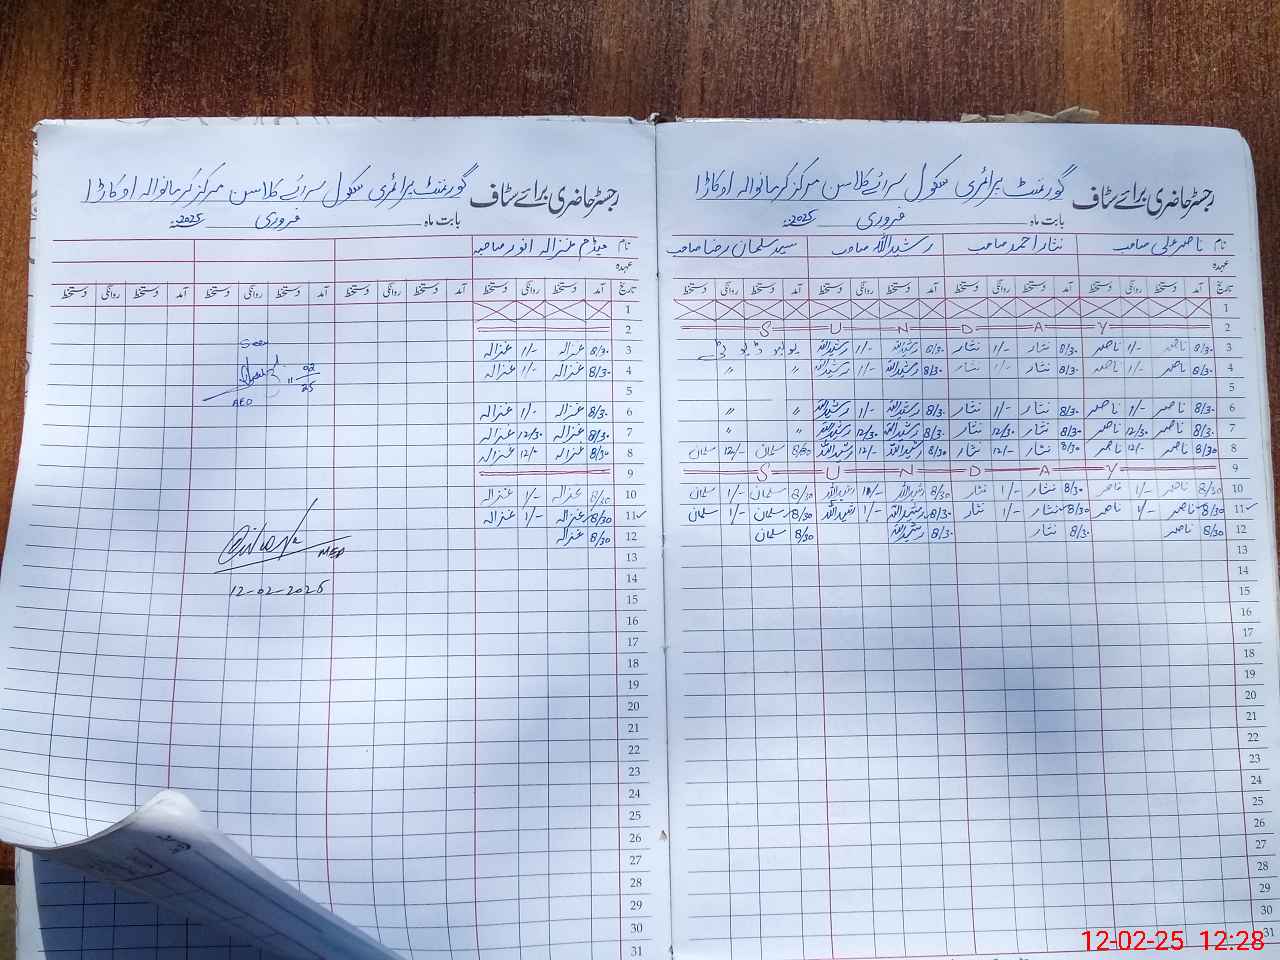 رجسٹر حاضری برائے سٹاف گورنمنٹ پرائمری سکول سرائے کلاسن مرکز کرمانوالہ اوکاڑا
بابت ماہ فروری 2025ء
نام ناصر علی صاحب نثار احمد صاحب رشید اللہ صاحب سید سلمان رضا صاحب
عہدہ
تاریخ آمد دستخط روانگی دستخط آمد دستخط روانگی دستخط آمد دستخط روانگی دستخط آمد دستخط روانگی دستخط
1
2 S U N D A Y
3 8/30 ناصر 1/- ناصر 8/30 نثار 1/- نثار 8/30 رشید اللہ 1/- رشید اللہ
4 8/30 ناصر 1/- ناصر 8/30 نثار 1/- نثار 8/30 رشید اللہ 1/- رشید اللہ " "
5
6 8/30 ناصر 1/- ناصر 8/30 نثار 1/- نثار 8/30 رشید اللہ 1/- رشید اللہ " "
7 8/30 ناصر 12/30 ناصر 8/30 نثار 12/30 نثار 8/30 رشید اللہ 12/30 رشید اللہ " "
8 8/30 ناصر 12/- ناصر 8/30 نثار 12/- نثار 8/30 رشید اللہ 12/- رشید اللہ 8/30 سلمان 12/- سلمان
9 S U N D A Y
10 8/30 ناصر 1/- ناصر 8/30 نثار 1/- نثار 8/30 رشید اللہ 1/- رشید اللہ 8/30 سلمان 1/- سلمان
11 8/30 ناصر 1/- ناصر 8/30 نثار 1/- نثار 8/30 رشید اللہ 1/- رشید اللہ 8/30 سلمان 1/- سلمان
12 8/30 ناصر 8/30 نثار 8/30 رشید اللہ 8/30 سلمان
13
14
15
16
17
18
19
20
21
22
23
24
25
26
27
28
29
30
31
رجسٹر حاضری برائے سٹاف گورنمنٹ پرائمری سکول سرائے کلاسن مرکز کرمانوالہ اوکاڑا
بابت ماہ فروری 2025ء
نام میڈم غزالہ انور صاحبہ
عہدہ
تاریخ آمد دستخط روانگی دستخط آمد دستخط روانگی دستخط آمد دستخط روانگی دستخط آمد دستخط روانگی دستخط
1
2
3 8/30 غزالہ 1/- غزالہ
4 8/30 غزالہ 1/- غزالہ
5
6 8/30 غزالہ 1/- غزالہ
7 8/30 غزالہ 12/30 غزالہ
8 8/30 غزالہ 12/- غزالہ
9
10 8/30 غزالہ 1/- غزالہ
11 8/30 غزالہ 1/- غزالہ
12 8/30 غزالہ
13
14
15
16
17
18
19
20
21
22
23
24
25
26
27
28
29
30
31
Seen
11 02
25
AEO
MEA
12-02-2025
12-02-25 12:28